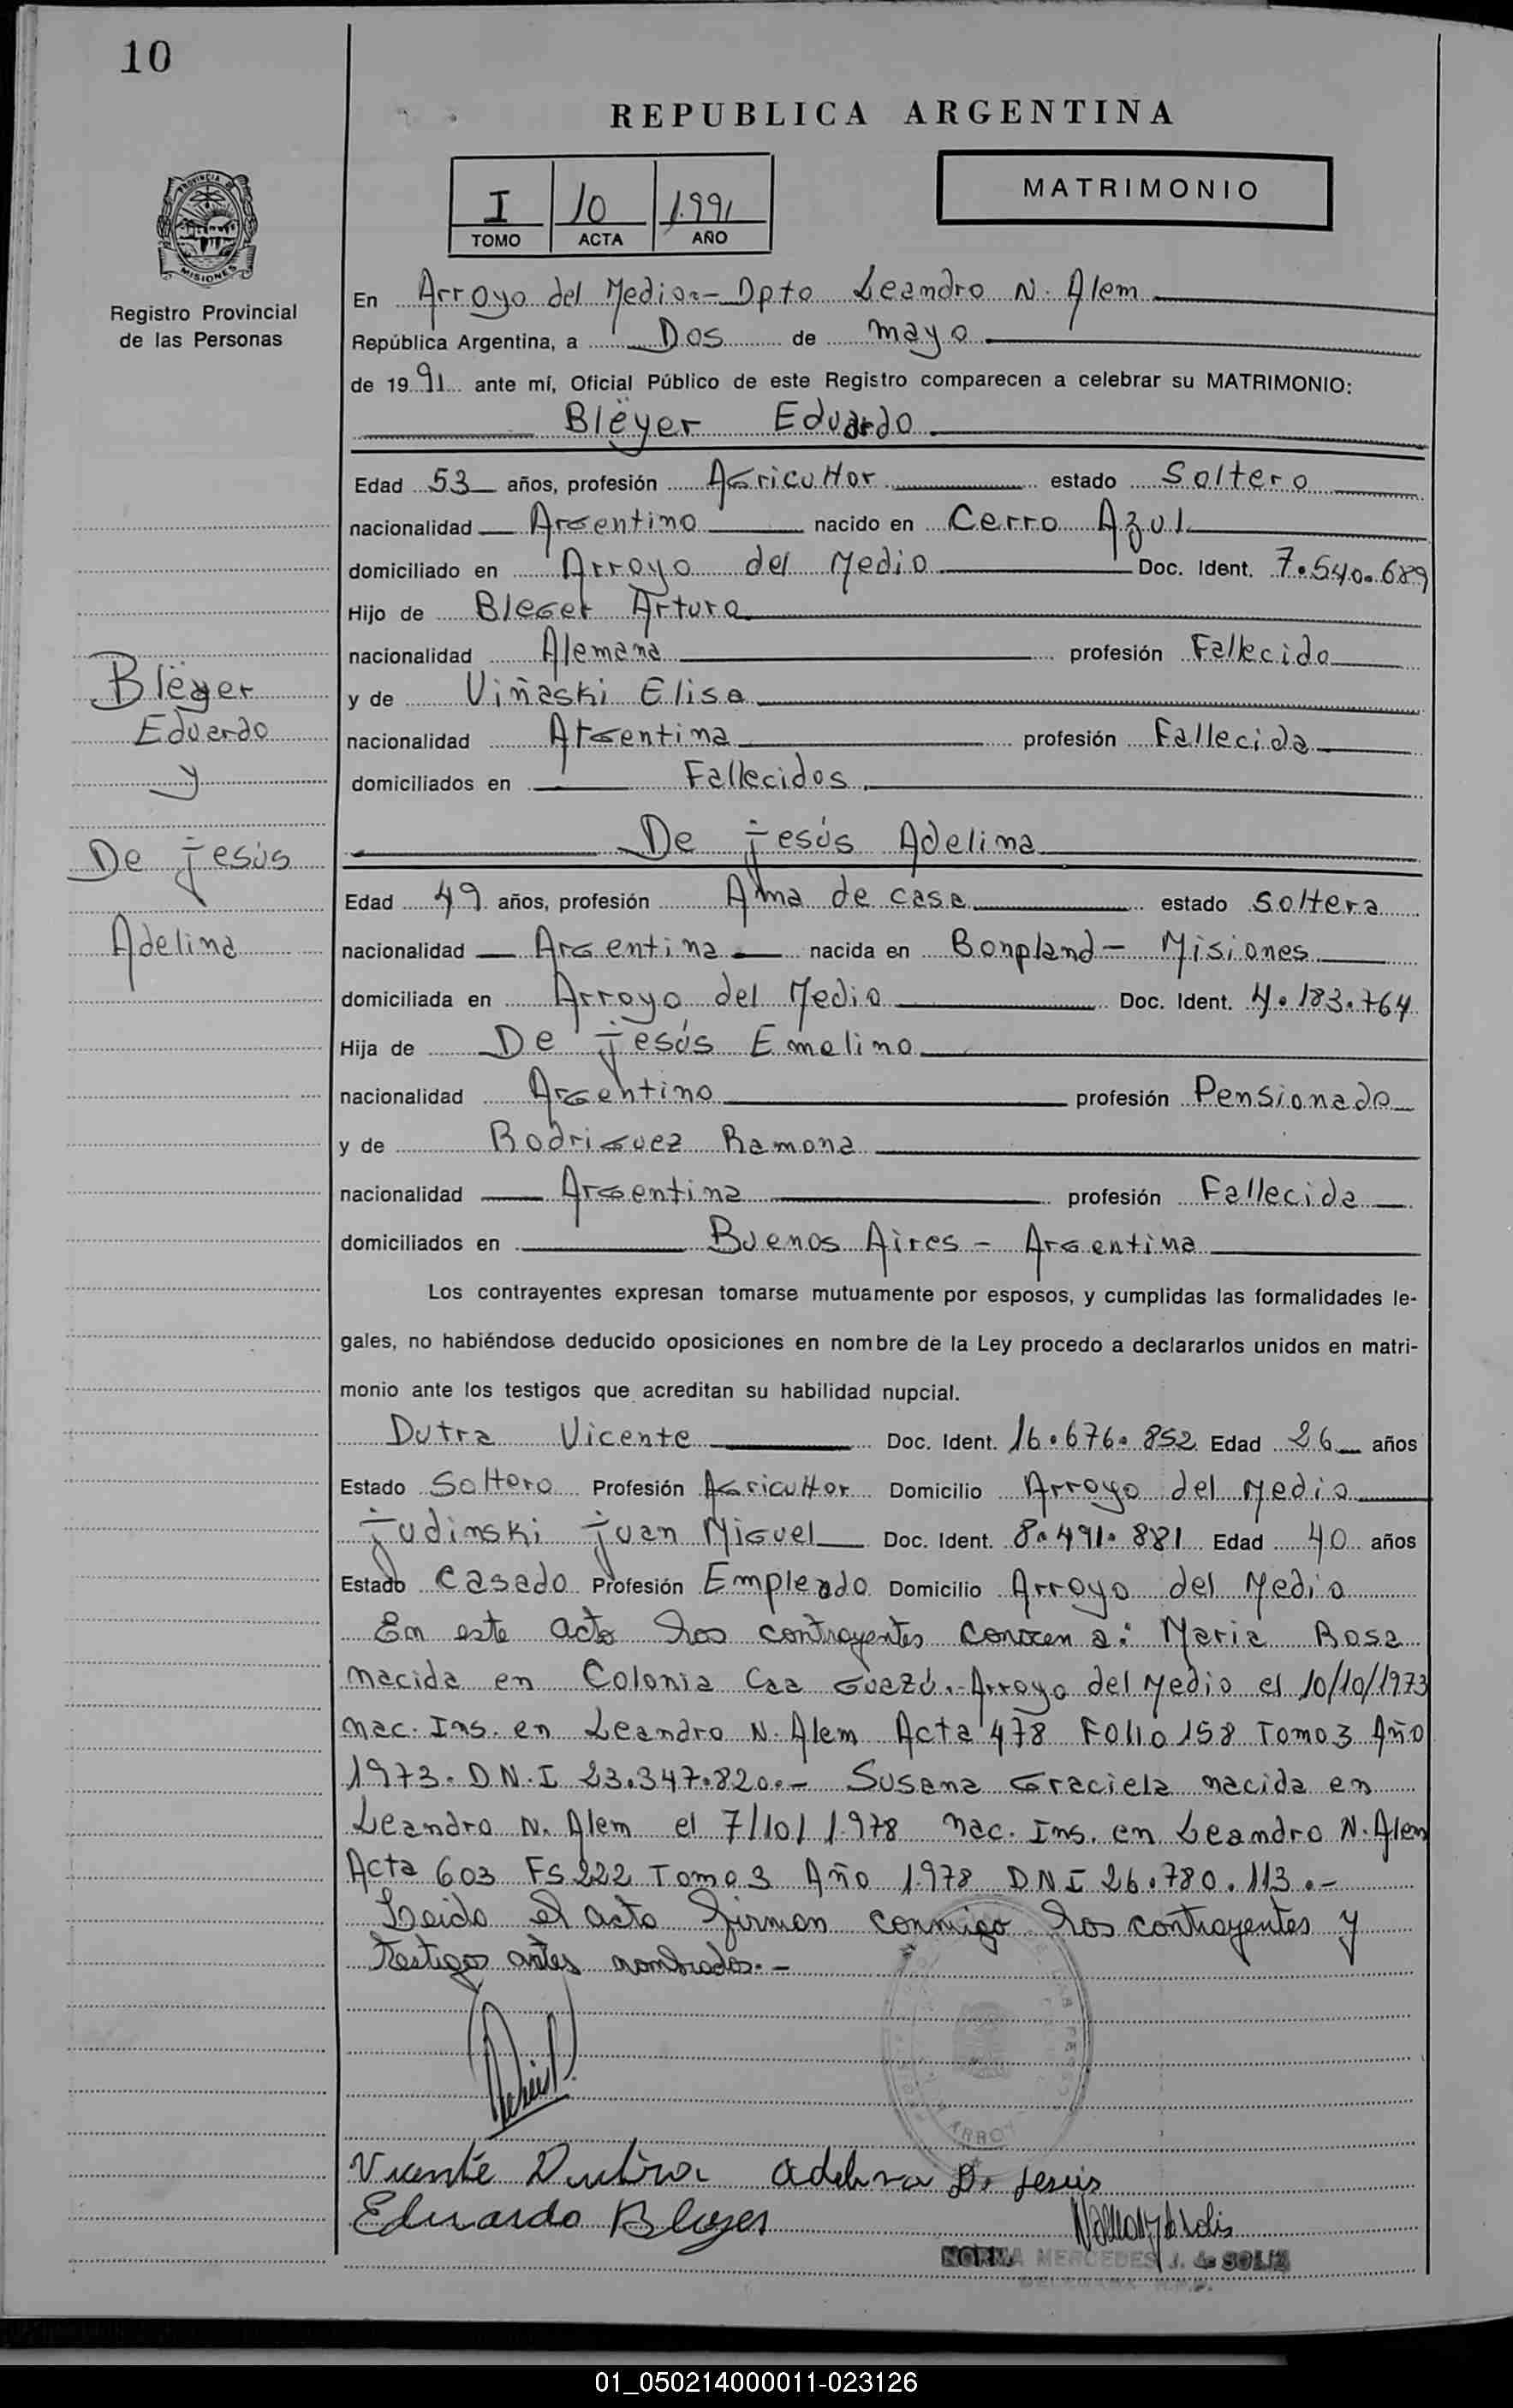 10
REPUBLICA ARGENTINA
I 10 1991
TOMO ACTA AÑO
MATRIMONIO
PROVINCIA DE
MISIONES
Registro Provincial
de las Personas
En Arroyo del Medio.- Dpto Leandro N. Alem
República Argentina, a Dos de mayo
de 1991 ante mí, Oficial Público de este Registro comparecen a celebrar su MATRIMONIO:
Blëyer Eduardo
Edad 53 años, profesión Agricultor estado Soltero
nacionalidad Argentino nacido en Cerro Azul
domiciliado en Arroyo del Medio Doc. Ident. 7.540.689
Hijo de Bleger Arturo
nacionalidad Alemana profesión Fallecido
y de Viñaski Elisa
nacionalidad Argentina profesión Fallecida
domiciliados en Fallecidos
Blëyer
Eduardo
y
De jesús
Adelina
De jesús Adelina
Edad 49 años, profesión Ama de casa estado Soltera
nacionalidad Argentina nacida en Bonpland - Misiones
domiciliada en Arroyo del Medio Doc. Ident. 4.183.764
Hija de De jesús Emelino
nacionalidad Argentino profesión Pensionado
y de Rodriguez Ramona
nacionalidad Argentina profesión Fallecida
domiciliados en Buenos Aires - Argentina
Los contrayentes expresan tomarse mutuamente por esposos, y cumplidas las formalidades le-
gales, no habiéndose deducido oposiciones en nombre de la Ley procedo a declararlos unidos en matri-
monio ante los testigos que acreditan su habilidad nupcial.
Dutra Vicente Doc. Ident. 16.676.852 Edad 26 años
Estado Soltero Profesión Agricultor Domicilio Arroyo del Medio
judinski juan Miguel Doc. Ident. 8.491.881 Edad 40 años
Estado Casado Profesión Empleado Domicilio Arroyo del Medio
En este acto los contrayentes conocen a: Maria Rosa
nacida en Colonia Caa Guazú.-Arroyo del Medio el 10/10/1973
nac. Ins. en Leandro N. Alem Acta 478 Folio 158 Tomo 3 Año
1973. D.N.I 23.347.820.- Susana Graciela nacida en
Leandro N. Alem el 7/10/1978 nac. Ins. en Leandro N. Alem
Acta 603 FS 222 Tomo 3 Año 1978 DNI 26.780.113.-
Leido el acto firman conmigo los contrayentes y
testigos antes nombrados.-
ARRO
Vicente Dutra Adelina D. Jesús
Eduardo Bleyer
NORMA MERCEDES J. de SOLIS
01_050214000011-023126